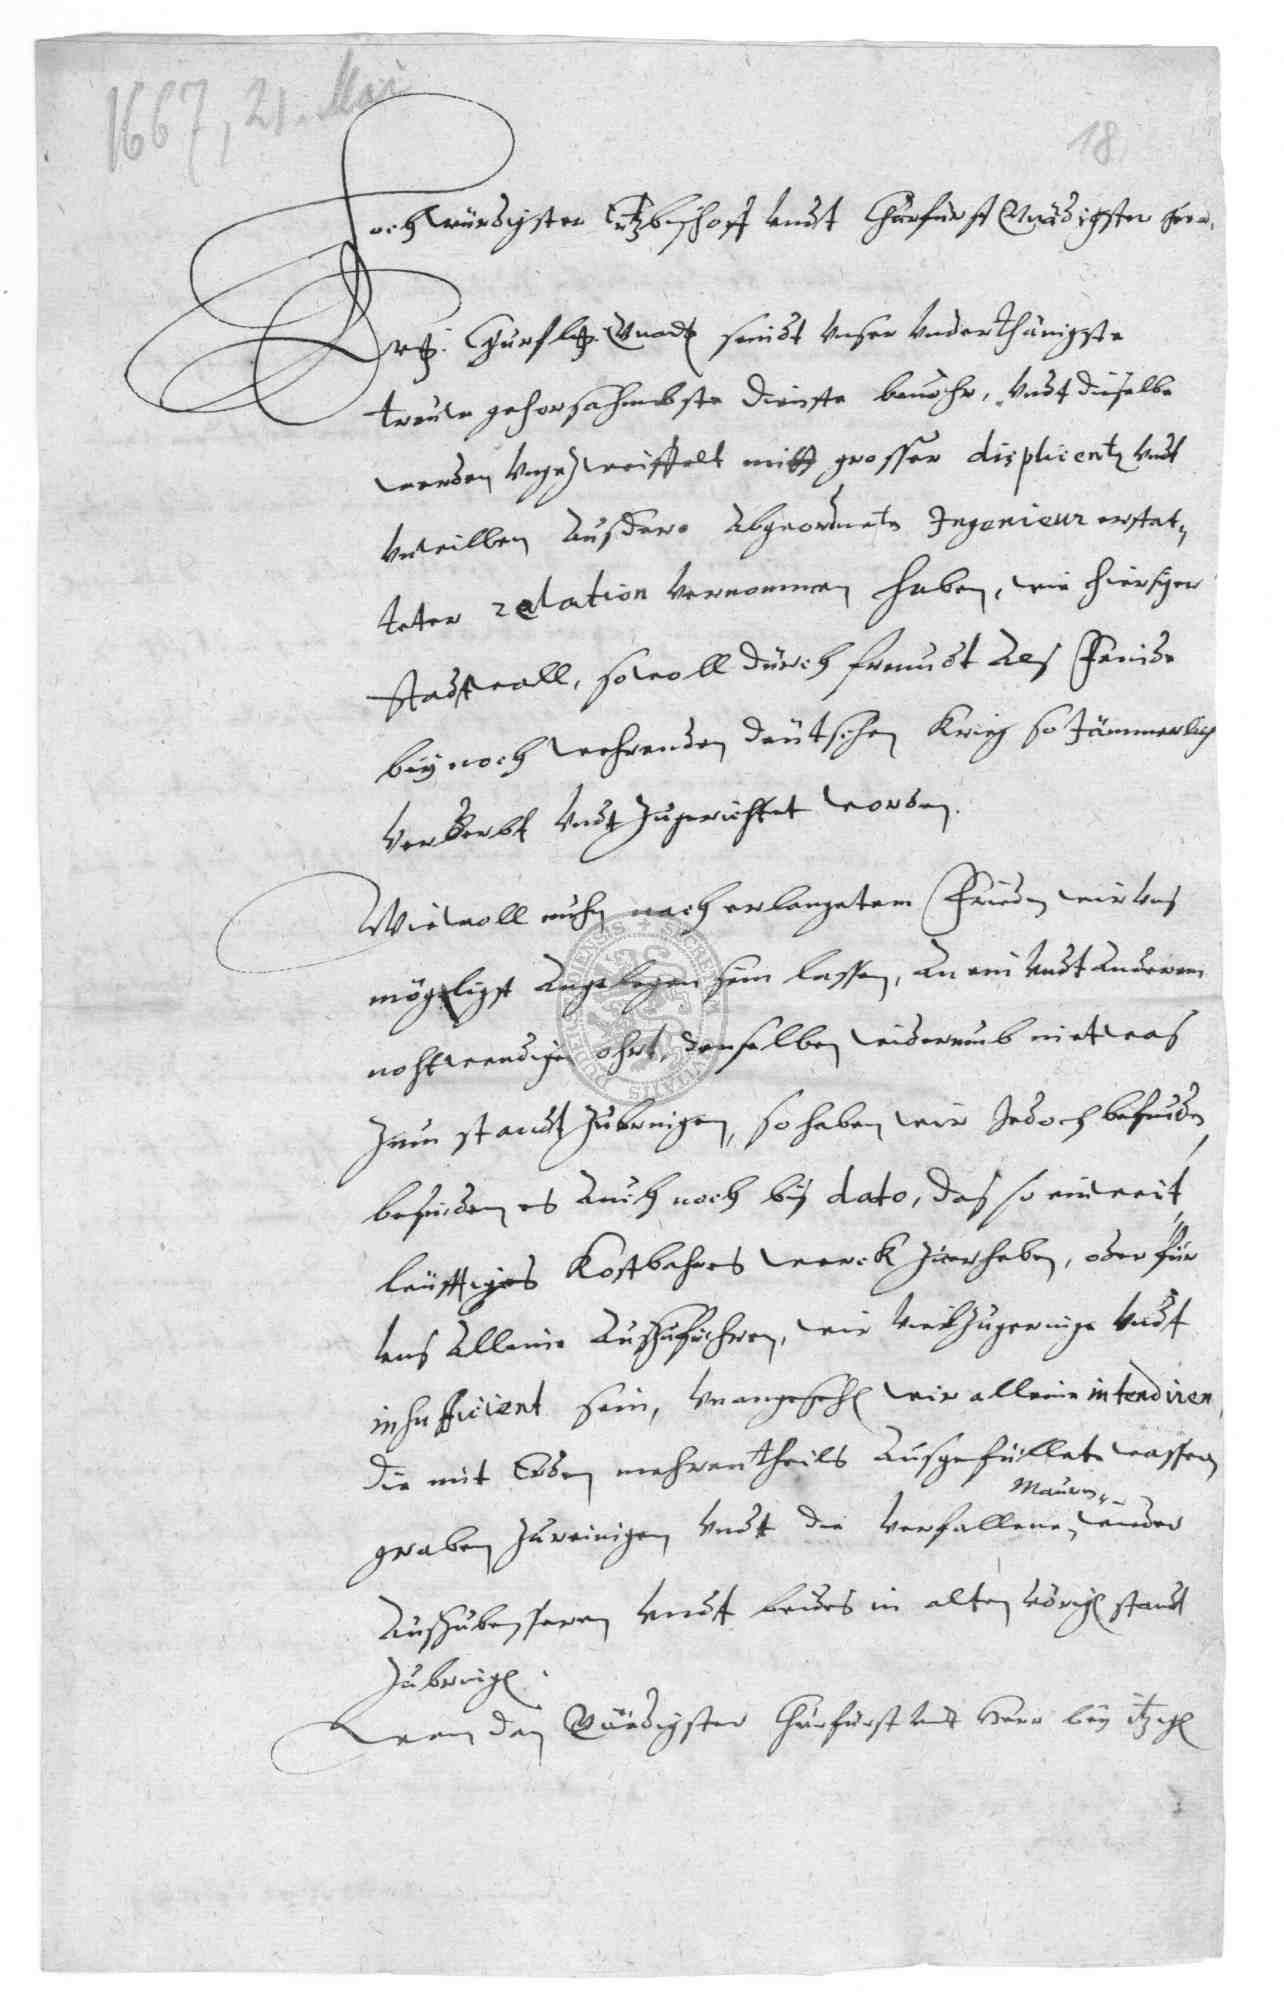 1667, 21. Mai
18
Hochwürdigster Ertzbischoff undt Churfürst Gnädigster Herr,
Ewr. Churfl. Gnadn seindt unser underthänigste
treüe gehorsahmbste Dienste bevohr, undt dieselbe
werden ungezweiffelt mitt grosser displicentz undt
unwillen aus dero abgeordnete Ingenieur erstat¬
teter relation vernommen haben, wie hiersiger
Stadtwall, sowoll dürch freündt als Feinde
bey noch wehrendem deütschen Krieg so Jämmerlich
verderbt undt zugerichtet worden.
Wiewoll nuhn nach erlangetem Frieden wir uns
möglichst angelegen sein lassen, an ein undt anderem
nohtwendigen ohrt, denselben widerumb in etwas
zum standt zubringen, so haben wir Jedoch befunden,
befinden es auch noch bis dato, das so ein weit¬
leüfftiges Kostbahres werck zuerheben, oder für
uns alleine auszuführen, wir viel zu geringe undt
insufficient sein, unangesehen wir alleine intendiren,
die mit Erden mehrentheils ausgefüllete wasser
graben zureinigen undt die verfallene Mauren wieder
auszubesseren undt beides in alten vörigen standt
zubringen.
Wen dan Gnädigster Churfürst undt Herr bey itzigen
SIGILLUM CIVITATIS DUDERSTADIENSIS